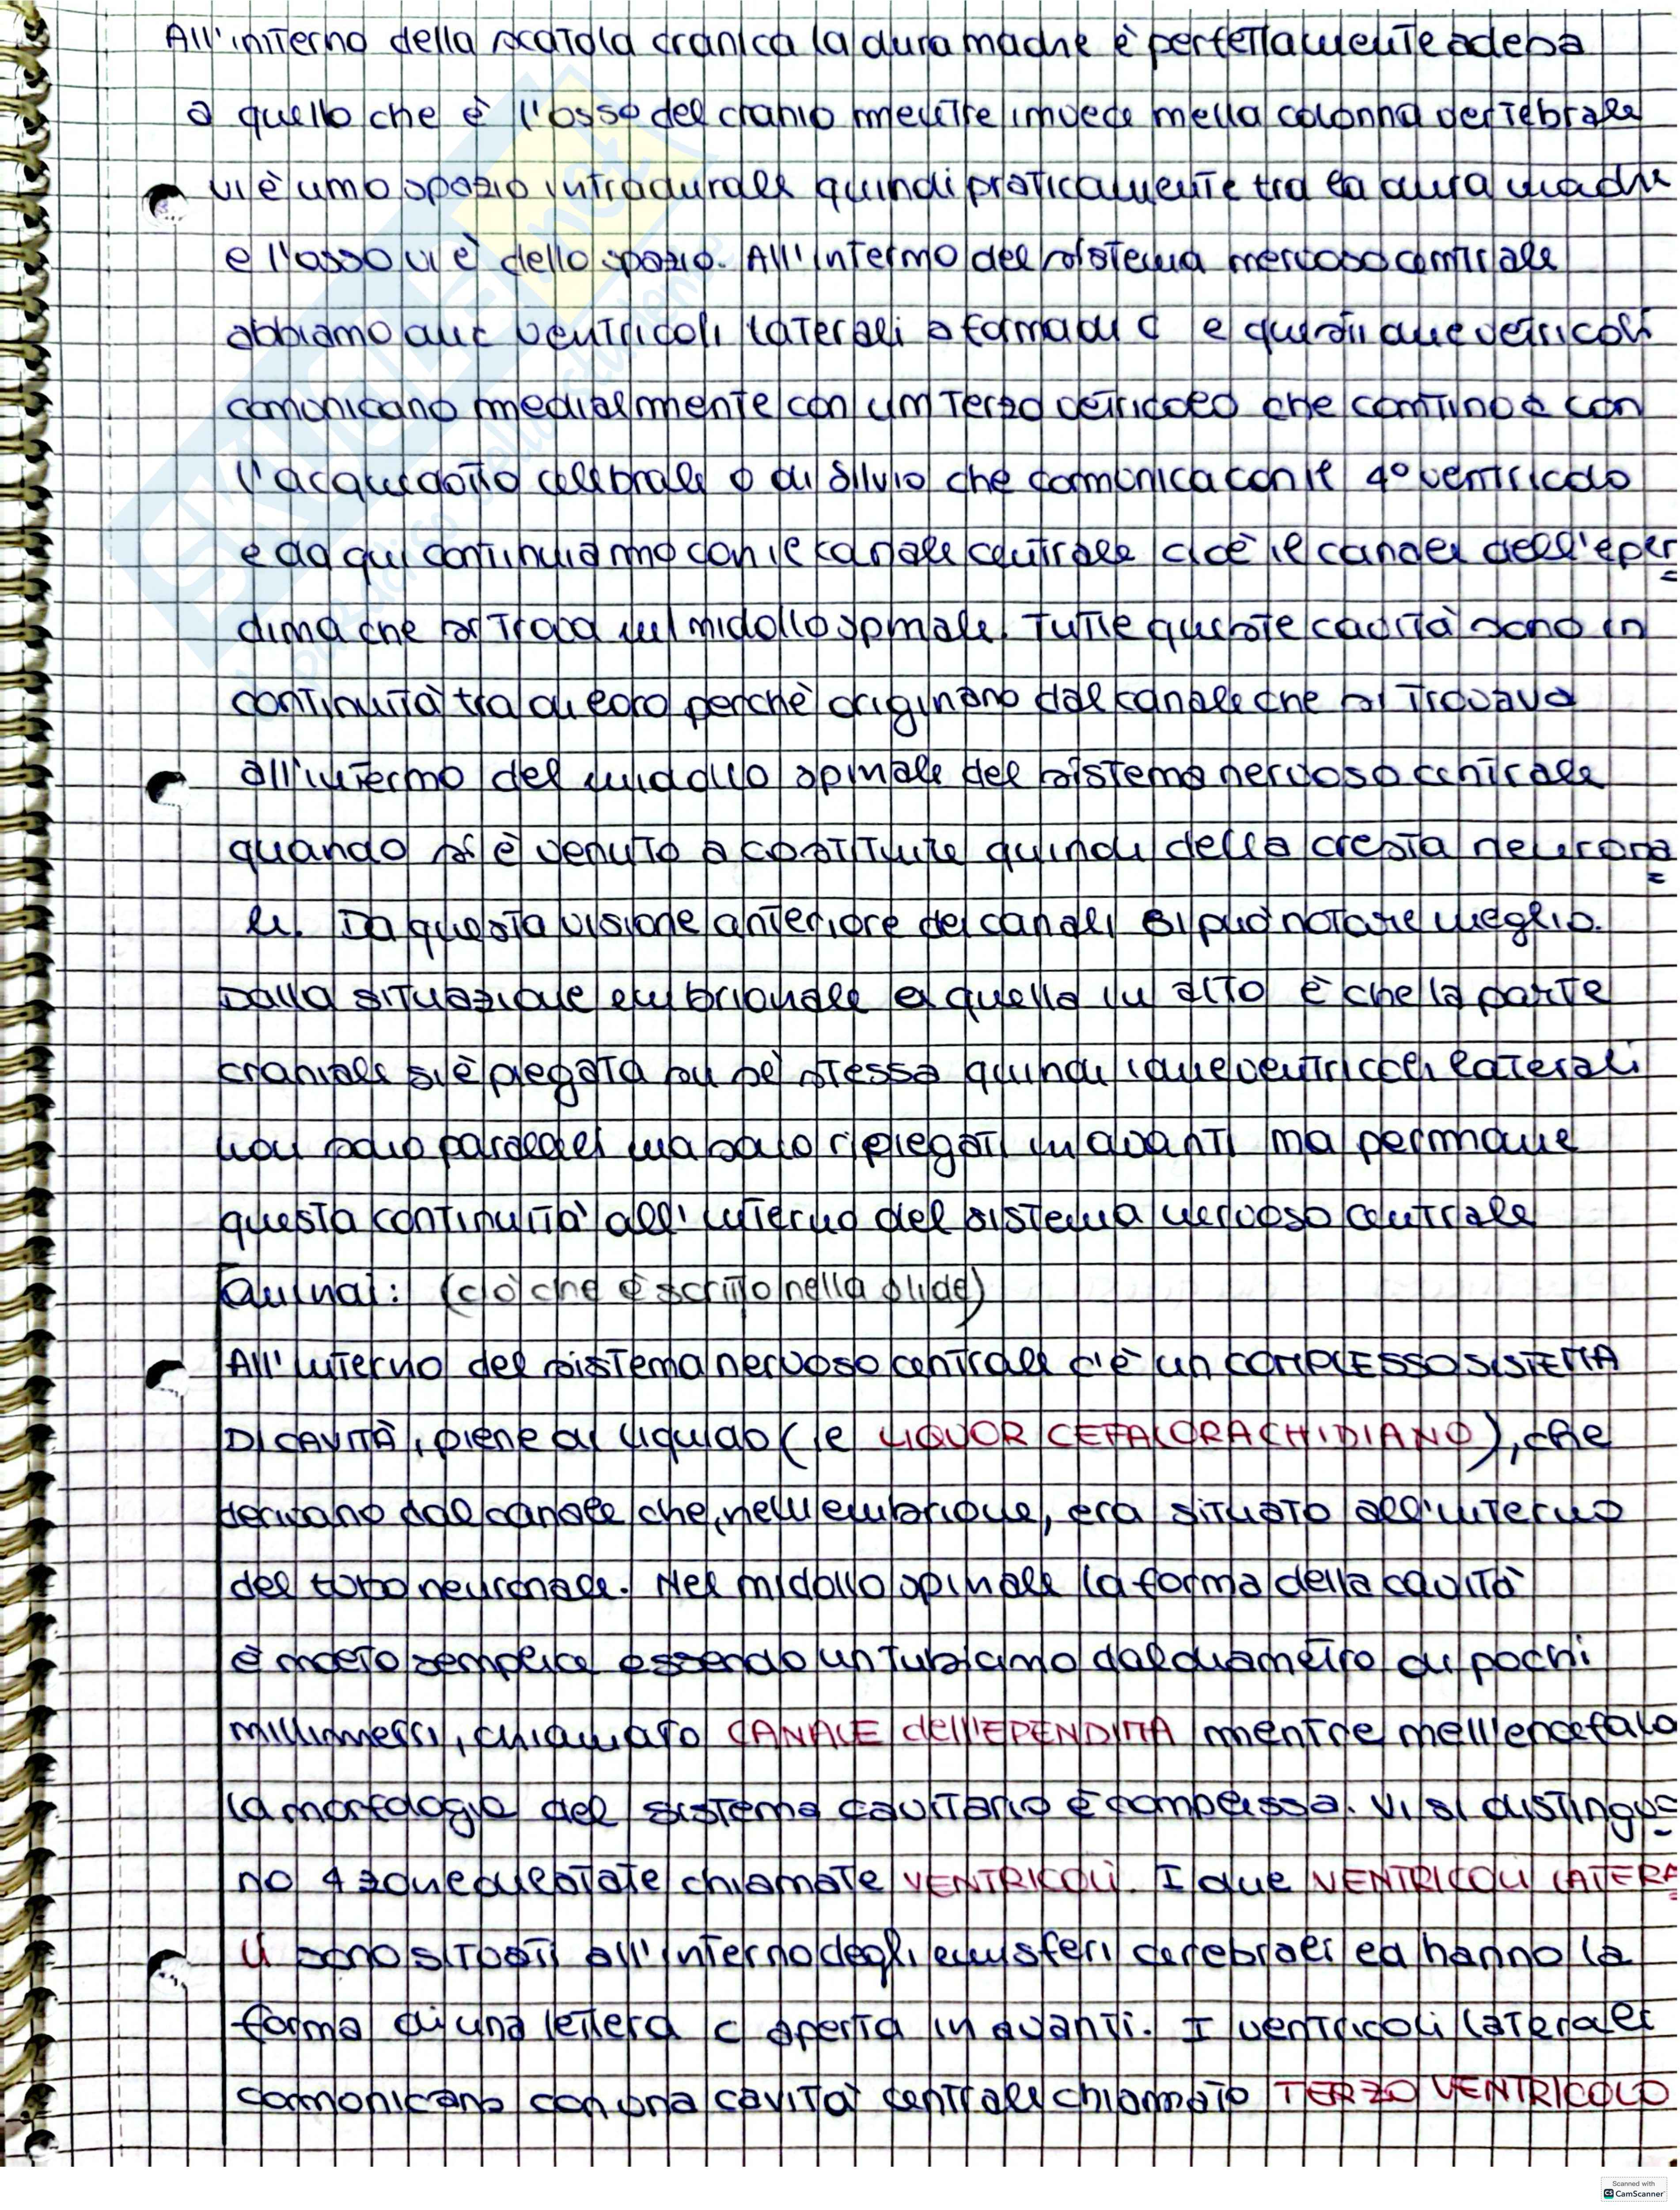 All'interno della scatola cranica la dura madre è perfettamente adesa
a quello che è l'osso del cranio mentre invece nella colonna vertebrale
vi è uno spazio intradurale quindi praticamente tra la dura madre
e l'osso vi è dello spazio. All'interno del sistema nervoso centrale
abbiamo due ventricoli laterali a forma di C e questi due vetricoli
comunicano medialmente con un terzo vetricolo che continua con
l'acquedotto celebrale o di Silvio che comunica con il 4° ventricolo
e da qui continuiamo con il canale centrale cioè il canale dell'epen
dima che si trova nel midollo spinale. Tutte queste cavità sono in
continuità tra di loro perchè originano dal canale che si trovava
all'interno del midollo spinale del sistema nervoso centrale
quando si è venuto a costituire quindi della cresta neurona
le. Da questa visione anteriore dei canali si può notare meglio.
Dalla situazione embrionale a quella in alto è che la parte
craniale si è piegata su sè stessa quindi i due ventricoli laterali
non sono paralleli ma sono ripiegati in avanti ma permane
questa continuità all'interno del sistema nervoso centrale
Quindi: (ciò che è scritto nella slide)
All'interno del sistema nervoso centrale c'è un COMPLESSO SISTEMA
DI CAVITÀ, piene di liquido (il LIQUOR CEFALORACHIDIANO), che
derivano dal canale che, nell'embrione, era situato all'interno
del tubo neuronale. Nel midollo spinale la forma della cavità
è molto semplice essendo un tubicino dal diametro di pochi
millimetri, chiamato CANALE dell'EPENDIMA mentre nell'encefalo
la morfologia del sistema cavitario è complessa. Vi si distinguo
no 4 zone dilatate chiamate VENTRICOLI. I due VENTRICOLI LATERA
LI sono situati all'interno degli emisferi cerebrali ed hanno la
forma di una lettera c aperta in avanti. I ventricoli laterali
comunicano con una cavità centrale chiamato TERZO VENTRICOLO
SKUOLA.net
il paradiso dello studente
Scanned with
CS CamScanner